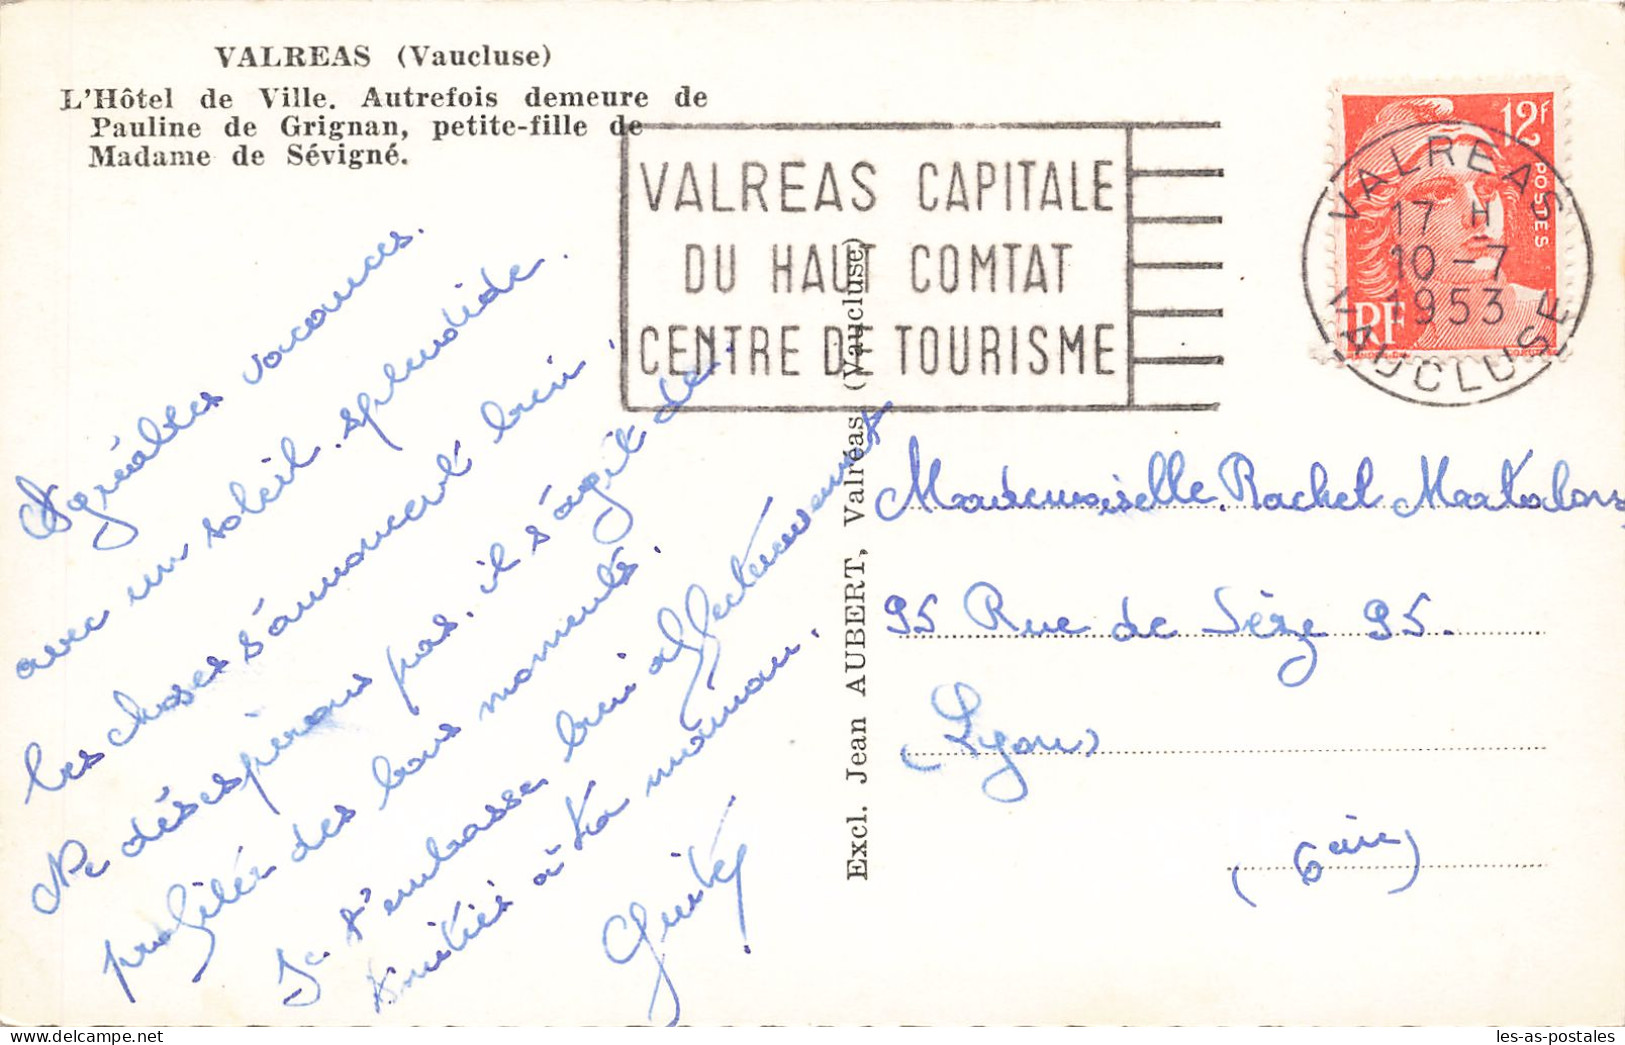 VALREAS (Vaucluse)
L'Hôtel de Ville. Autrefois demeure de
Pauline de Grignan, petite-fille de
Madame de Sévigné.
VALREAS CAPITALE
DU HAUT COMTAT
CENTRE DE TOURISME
12f
POSTES
RF
VALREAS
17 H
10-7
1953
VAUCLUSE
Agréables vacances.
avec un soleil splendide.
les choses s'annoncent bien.
Ne désespérons pas, il s'agit de
profiter des bons moments.
Je t'embrasse bien affectueusement
Amitiés à ta maman.
Guity
Excl. Jean AUBERT, Valréas (Vaucluse)
Mademoiselle Rachel Matalon
95 Rue de Sèze 95.
(Lyon)
(6 èm)
les-as-postales